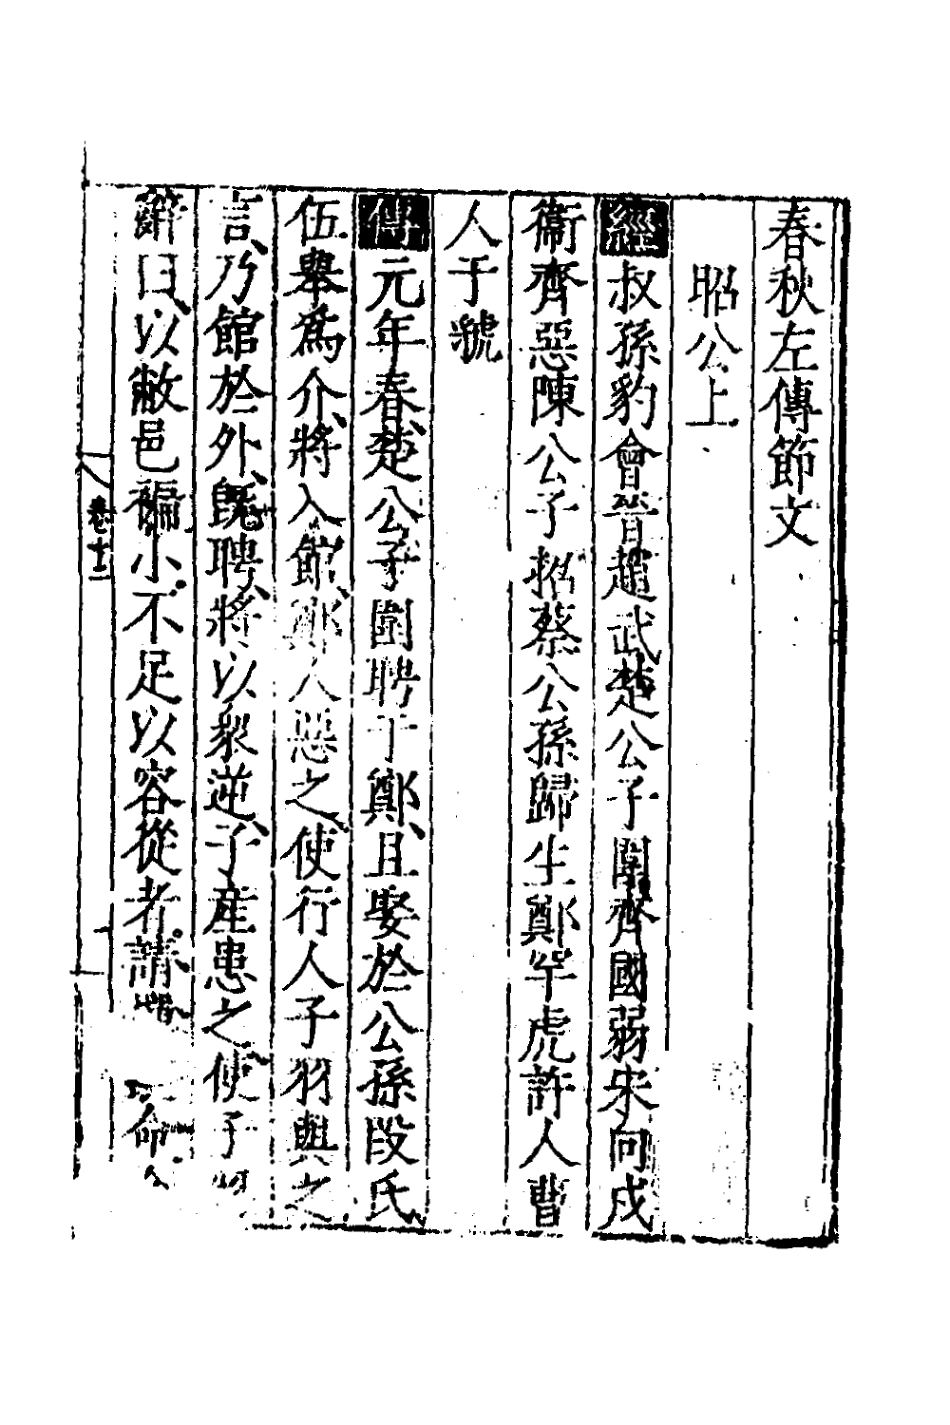 春秋左傳節文
昭公上
經叔孫豹會晉趙武楚公子圍齊國弱宋向戍
衞齊惡陳公子招蔡公孫歸生鄭罕虎許人曹
人于虢
傳元年春、楚公子圍聘于鄭、且娶於公孫段氏
伍舉爲介、將入館、鄭人惡之、使行人子羽與之
言、乃館於外、旣聘、將以衆逆、子產患之、使子羽
辭曰、以敝邑褊小、不足以容從者、請墠命
卷十二